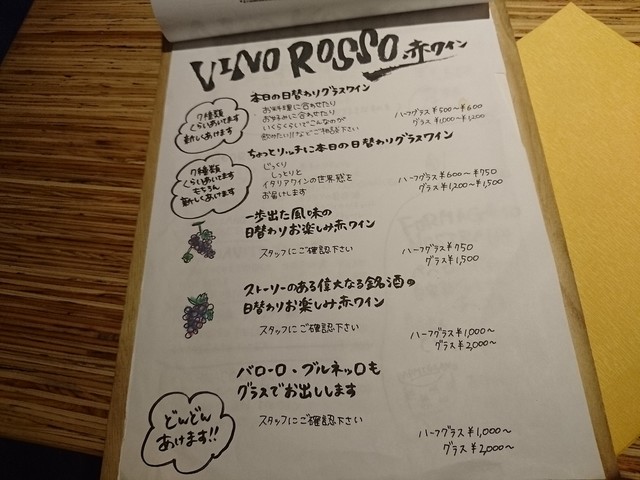 VINO ROSSO 赤ワイン
本日の日替わりグラスワイン
7種類
くらいあいてます
新しくあけます
お料理に合わせたり
お好みに合わせたり
いくらくらいでこんなのが
飲みたい!!などご相談下さい
ハーフグラス¥500〜¥600
グラス¥1,000〜¥1,200
ちょっとリッチに本日の日替わりグラスワイン
7種類
くらいあいてます
もちろん
新しくあけます
じっくり
しっとりと
イタリアワインの世界感を
お届けします
ハーフグラス¥600〜¥750
グラス¥1,200〜¥1,500
一歩出た風味の
日替わりお楽しみ赤ワイン
スタッフにご確認下さい
ハーフグラス¥750
グラス¥1,500
ストーリーのある偉大なる銘酒の
日替わりお楽しみ赤ワイン
スタッフにご確認下さい
ハーフグラス¥1,000〜
グラス¥2,000〜
バローロ、ブルネッロも
グラスでお出しします
どんどん
あけます!!
スタッフにご確認下さい
ハーフグラス¥1,000〜
グラス¥2,000〜